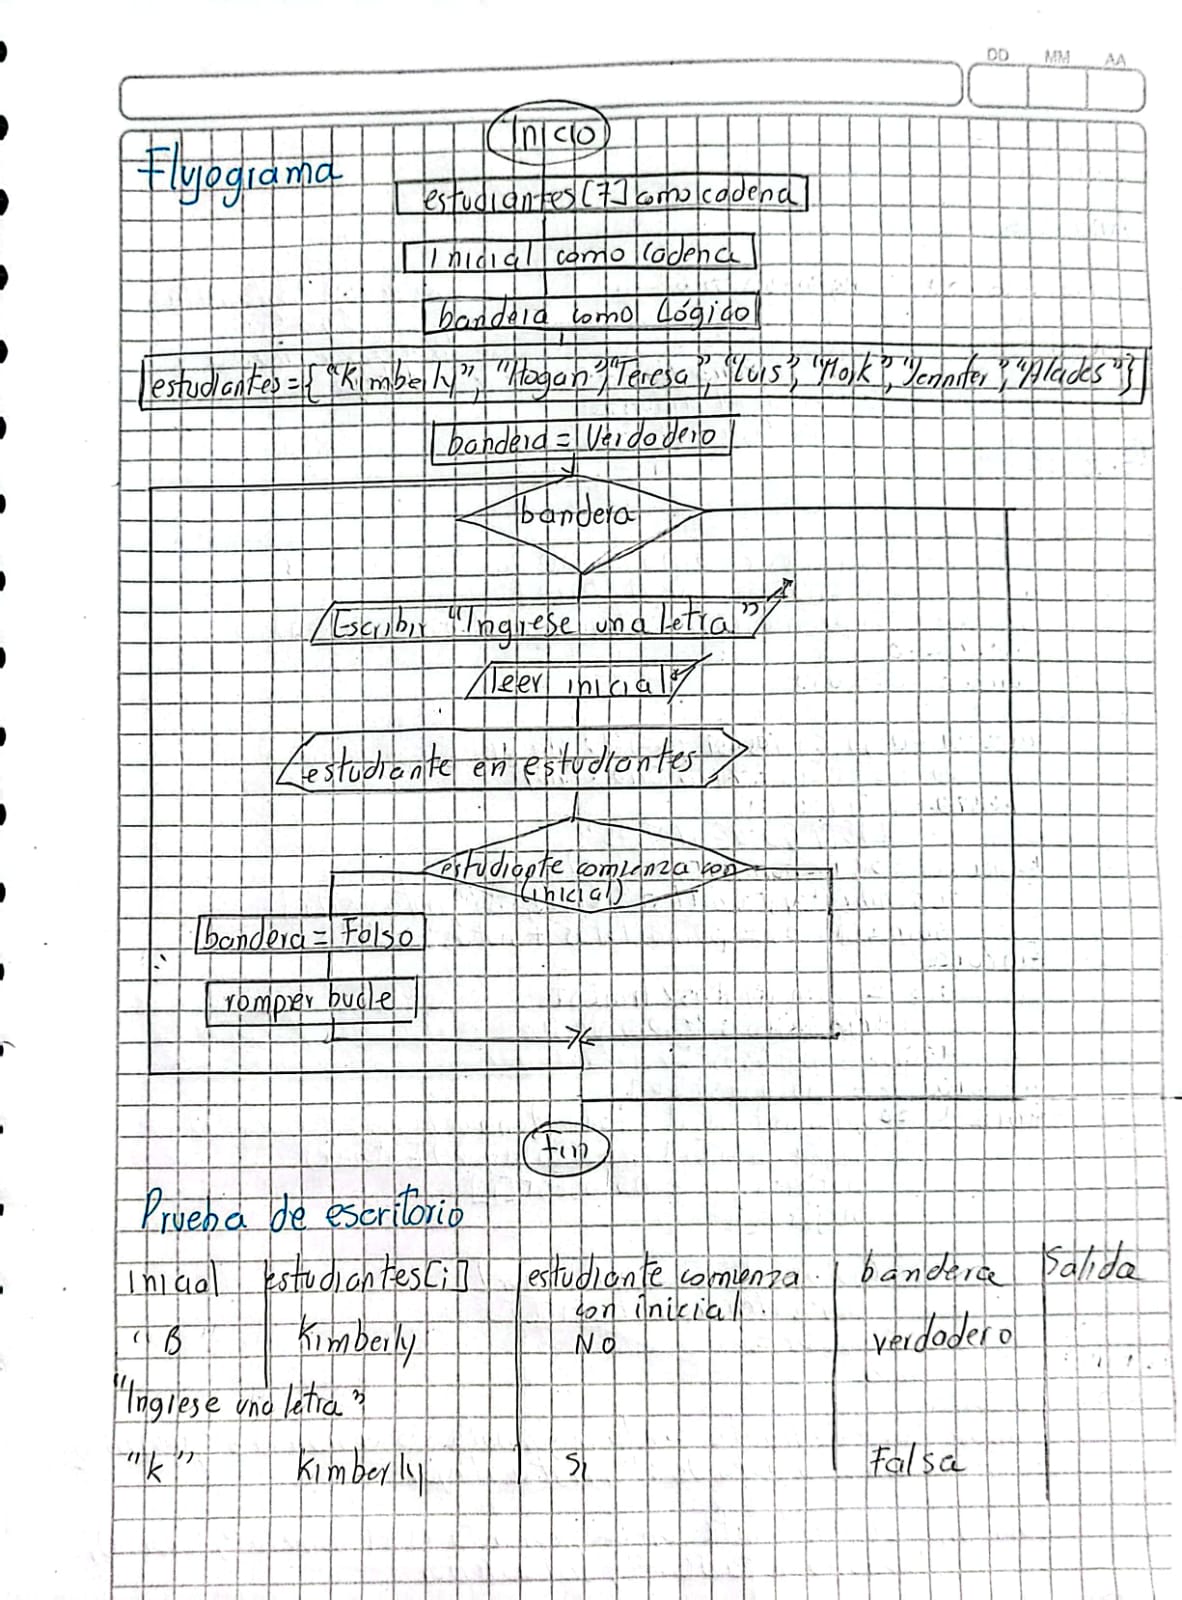 DD MM AA
Inicio
Flujograma
estudiantes[7] como cadena
Inicial como cadena
bandera como Lógico
estudiantes={"Kimberly", "Hogan", "Teresa", "Luis", "Jennifer",
bandera = Verdadero
bandera
Escribir "Ingrese una letra"
leer inicial
estudiante en estudiantes
estudiante comienza con
(inicial)
bandera = Falso
romper bucle
Fin
Prueba de escritorio
Inicial estudiantes[i] estudiante comienza bandera Salida
con inicial.
"B Kimberly NO verdadero
"Ingrese una letra"
"k" Kimberly Si Falsa